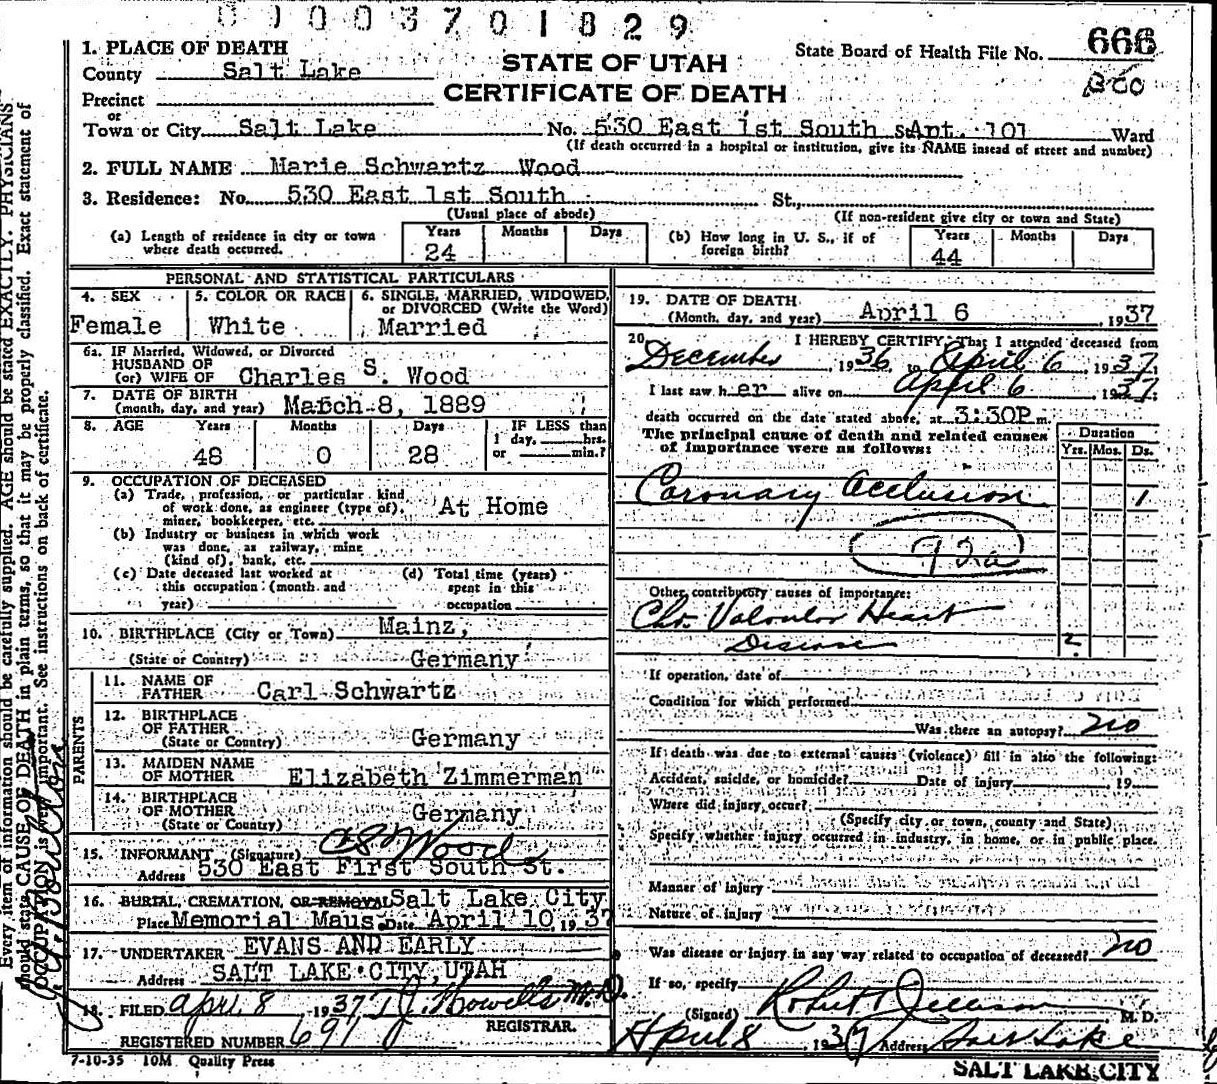 0 1 0 0 3 7 0 1 8 2 9
1. PLACE OF DEATH
County Salt Lake
Precinct
or
Town or City Salt Lake No. 530 East 1st South St Apt. 101 Ward
(If death occurred in a hospital or institution, give its NAME insead of street and number)
STATE OF UTAH
CERTIFICATE OF DEATH
State Board of Health File No. 666
2. FULL NAME Marie Schwartz Wood
3. Residence: No. 530 East 1st South St.,
(Usual place of abode) (If non-resident give city or town and State)
(a) Length of residence in city or town where death occurred. Years 24 Months Days
(b) How long in U. S., if of foreign birth? Years 44 Months Days
PERSONAL AND STATISTICAL PARTICULARS
4. SEX Female
5. COLOR OR RACE White
6. SINGLE, MARRIED, WIDOWED, or DIVORCED (Write the Word) Married
6a. IF Married, Widowed, or Divorced
HUSBAND OF
(or) WIFE OF Charles S. Wood
7. DATE OF BIRTH
(month, day, and year) March 8, 1889
8. AGE Years 48 Months 0 Days 28 IF LESS than
1 day, hrs.
or min.?
9. OCCUPATION OF DECEASED
(a) Trade, profession, or particular kind
of work done, as engineer (type of),
miner, bookkeeper, etc. At Home
(b) Industry or business in which work
was done, as railway, mine
(kind of), bank, etc.
(c) Date deceased last worked at
this occupation (month and
year)
(d) Total time (years)
spent in this
occupation
10. BIRTHPLACE (City or Town) Mainz,
(State or Country) Germany
PARENTS
11. NAME OF
FATHER Carl Schwartz
12. BIRTHPLACE
OF FATHER
(State or Country) Germany
13. MAIDEN NAME
OF MOTHER Elizabeth Zimmerman
14. BIRTHPLACE
OF MOTHER
(State or Country) Germany
15. INFORMANT (Signature) CS Wood
Address 530 East First South St.
16. BURIAL, CREMATION, OR REMOVAL Salt Lake City
Place Memorial Maus. Date April 10, 1937
17. UNDERTAKER EVANS AND EARLY
Address SALT LAKE CITY, UTAH
18. FILED Apr. 8 1937 T.J. Howells M.D.
REGISTRAR.
REGISTERED NUMBER 691
7-10-35 10M Quality Press
19. DATE OF DEATH
(Month, day, and year) April 6, 1937
20. I HEREBY CERTIFY, That I attended deceased from
December, 1936, to April 6, 1937.
I last saw her alive on April 6 1937.
death occurred on the date stated above, at 3:30P m.
The principal cause of death and related causes
of importance were as follows:
Duration
Yrs. Mos. Ds.
Coronary Occlusion 1
Other contributory causes of importance:
Chr. Valvular Heart
Disease 2.
If operation, date of
Condition for which performed
Was there an autopsy? no
If death was due to external causes (violence) fill in also the following:
Accident, suicide, or homicide? Date of injury 19
Where did injury occur?
(Specify city or town, county and State)
Specify whether injury occurred in industry, in home, or in public place.
Manner of injury
Nature of injury
Was disease or injury in any way related to occupation of deceased? no
If so, specify
(Signed) Robert M.D.
April 8 1937 Address Salt Lake
SALT LAKE CITY
Every item of information should be carefully supplied. AGE should be stated EXACTLY. PHYSICIANS
should state CAUSE OF DEATH in plain terms, so that it may be properly classified. Exact statement of
OCCUPATION is important. See instructions on back of certificate.